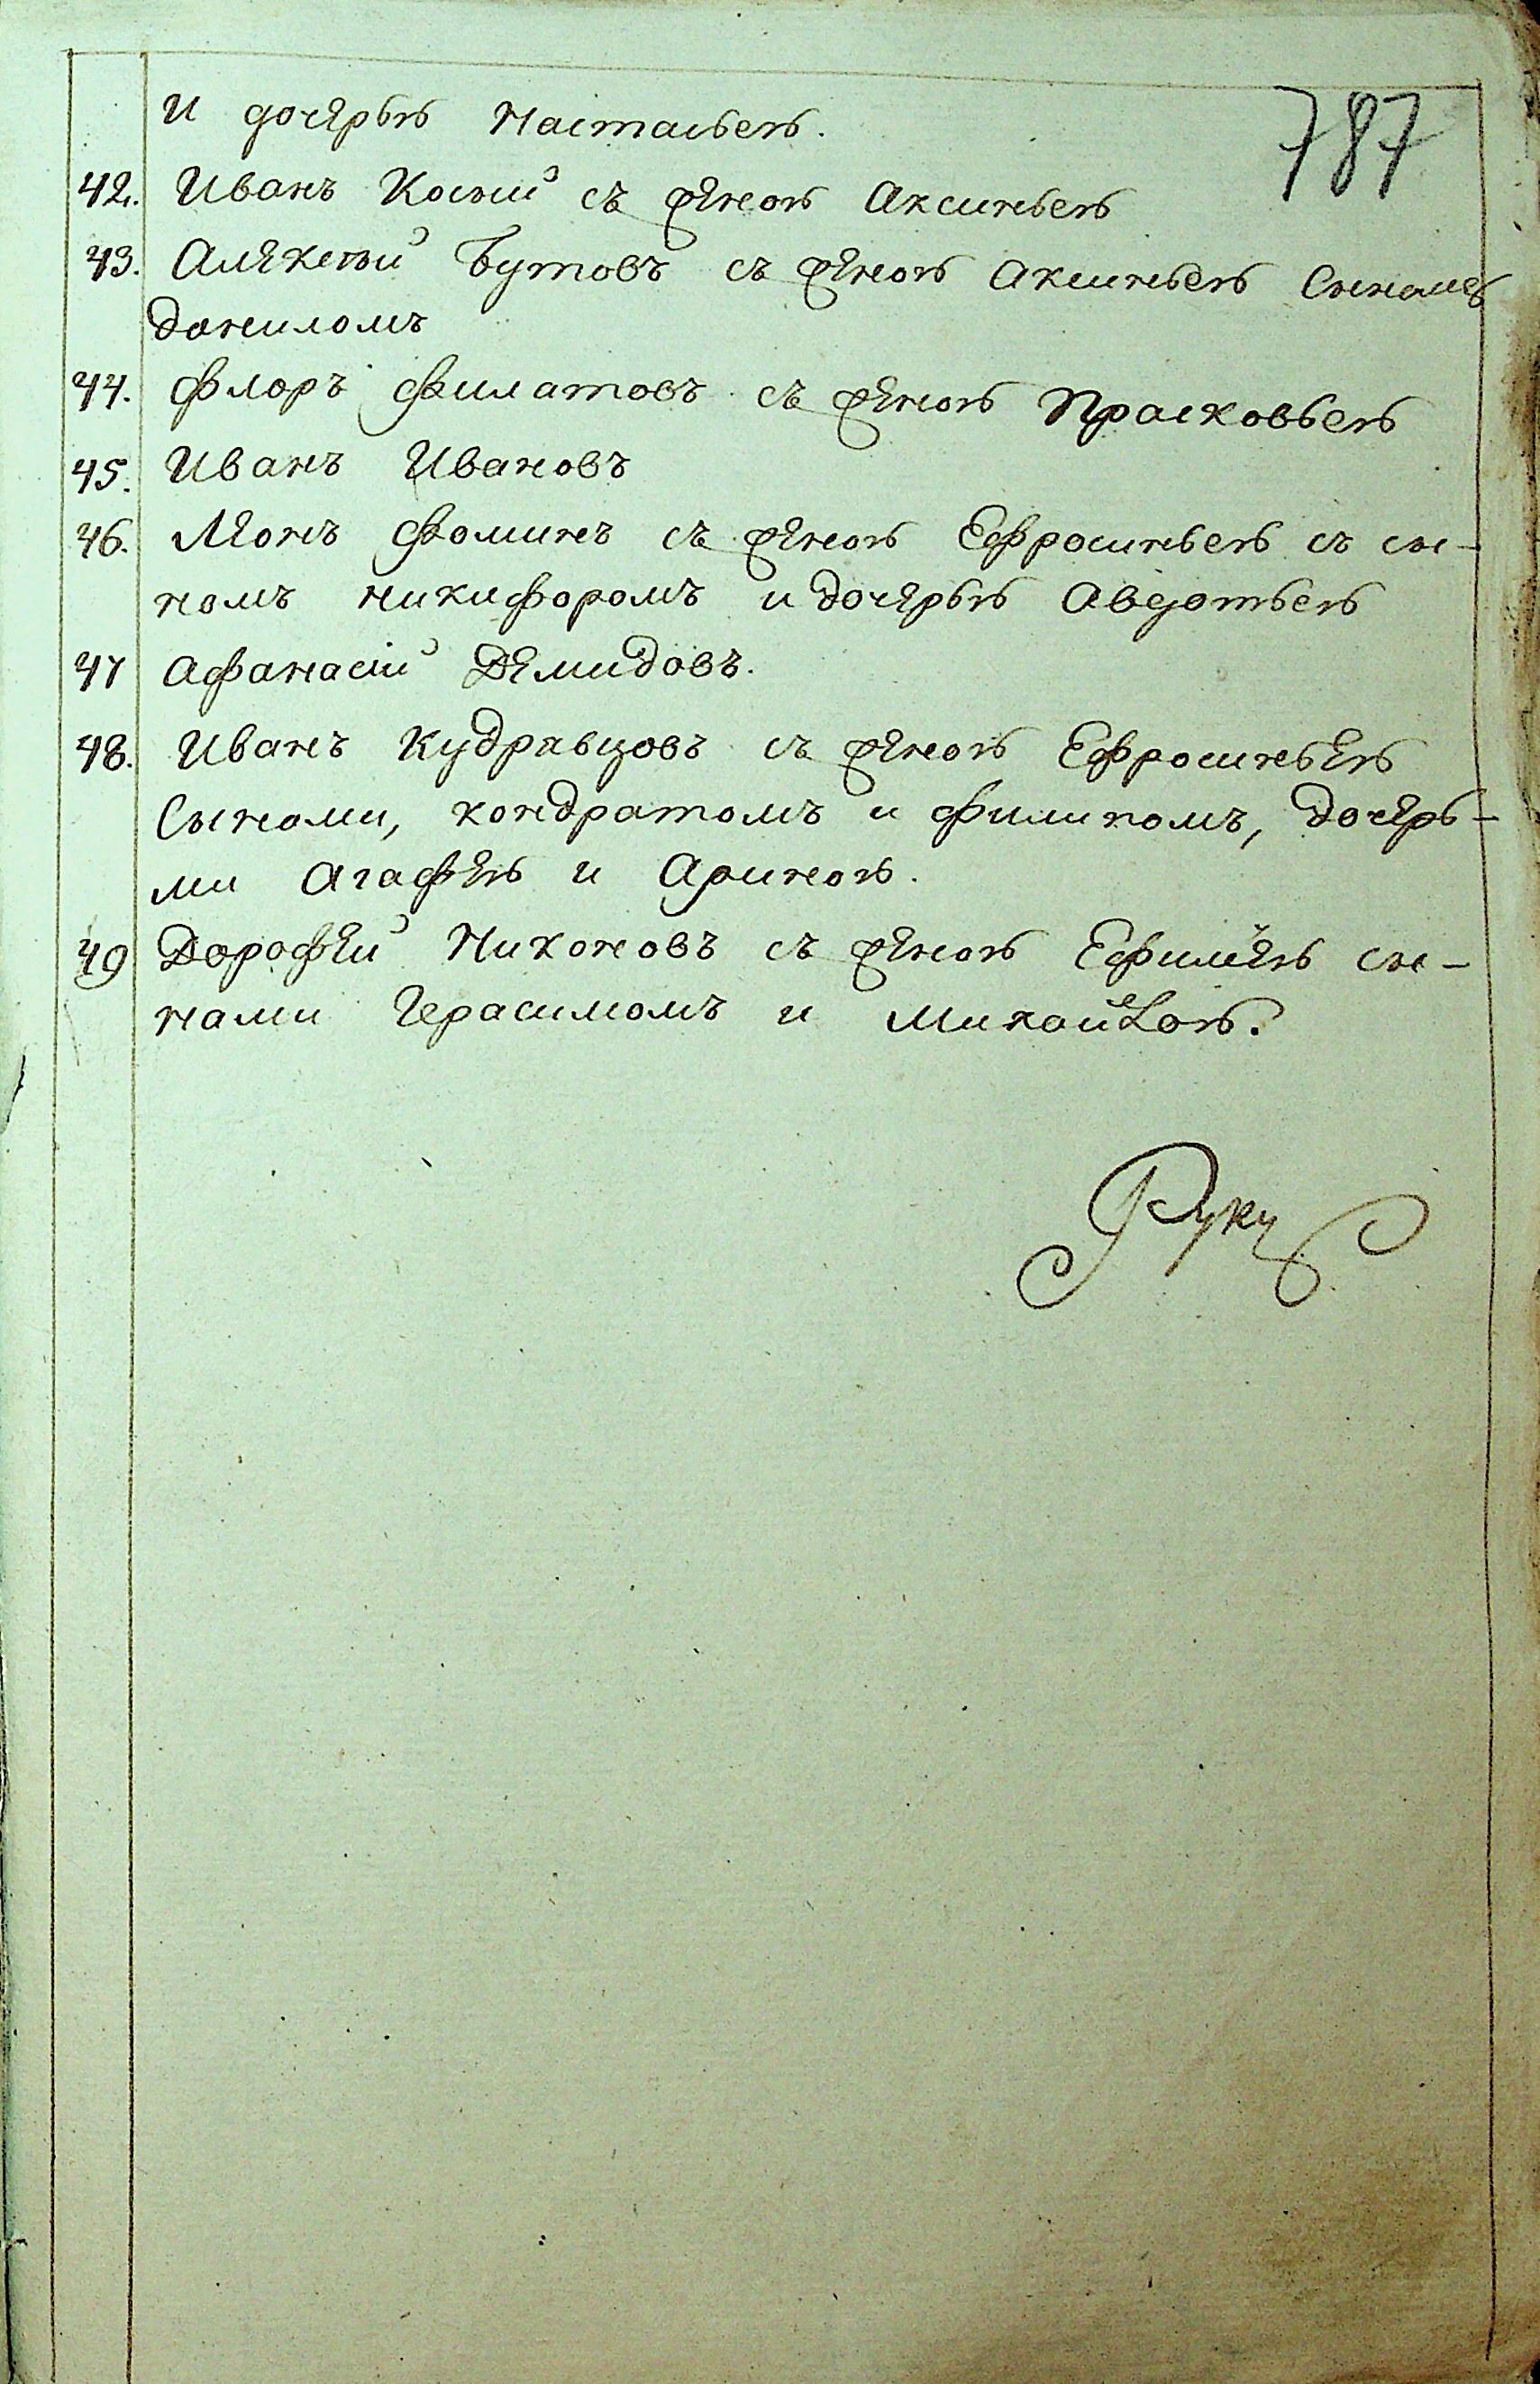 787
и дочерью Настасьею.
42. Иванъ Косый съ женою Аксиньею
43. Алексѣй Бутовъ съ женою Аксиньею Сыномъ
Даниломъ
44. Флоръ Филатовъ съ женою Прасковьею
45. Иванъ Ивановъ
46. Леонъ Фоминъ съ женою Ефросиньею съ сы-
номъ никифоромъ и дочерью Авдотьею
47 Афанасій Демидовъ.
48. Иванъ Кудрявцовъ съ женою Ефросиньею
Сынами, кондратомъ и Филипомъ, дочерь-
ми Агафею и Ариною.
49 Дорофей Никоновъ съ женою Ефимѣею сы-
нами Герасимомъ и Михайлою.
Руку